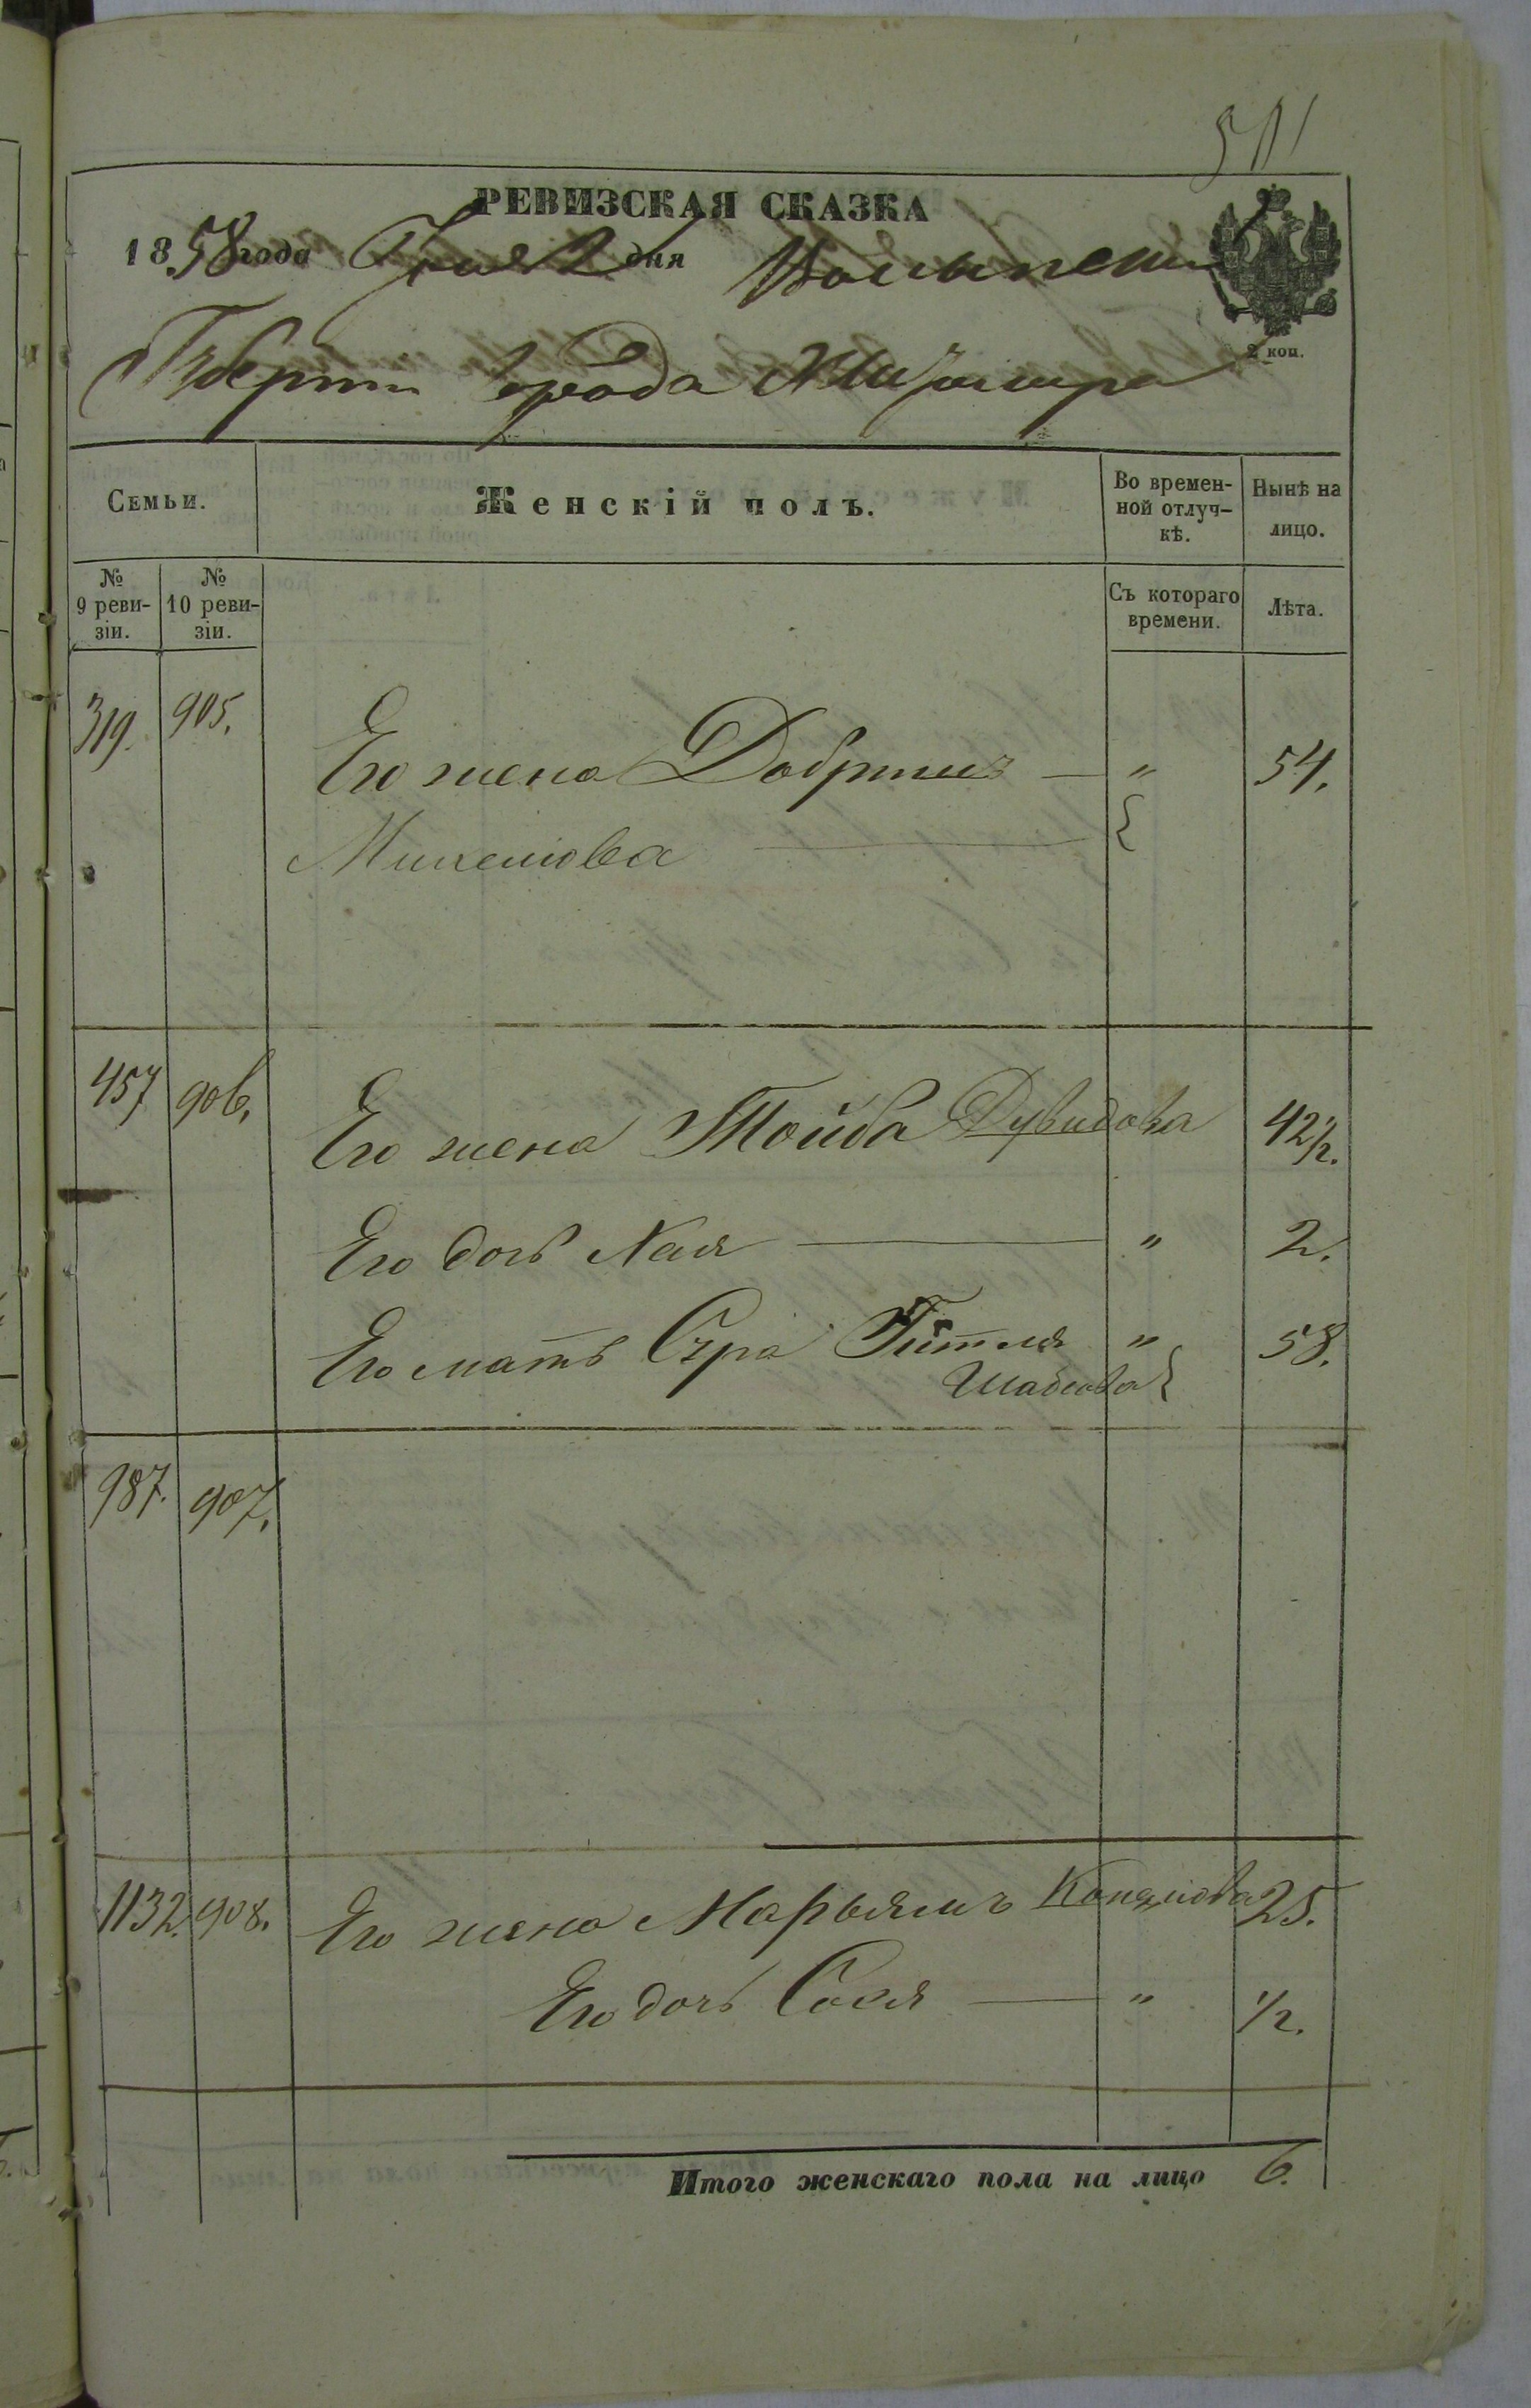 511
РЕВИЗСКАЯ СКАЗКА
1858 года Іюня 2 дня Волынской
2 коп.
Губерніи Города Житомира
Семьи.
Женскій полъ.
Во времен-
ной отлуч-
кѣ.
Нынѣ на
лицо.
№
9 реви-
зіи.
№
10 реви-
зіи.
Съ котораго
времени.
Лѣта.
319. 905.
Его жена Добришъ — " 54.
457 906.
Его жена Тойба Дувидова 42½.
Его дочь Хая — " 2.
Его мать Сура Гитля " 58.
987. 907.
1132. 908. Его жена Марьямъ 25.
Его дочь Сося — " ½.
Итого женскаго пола на лицо 6.